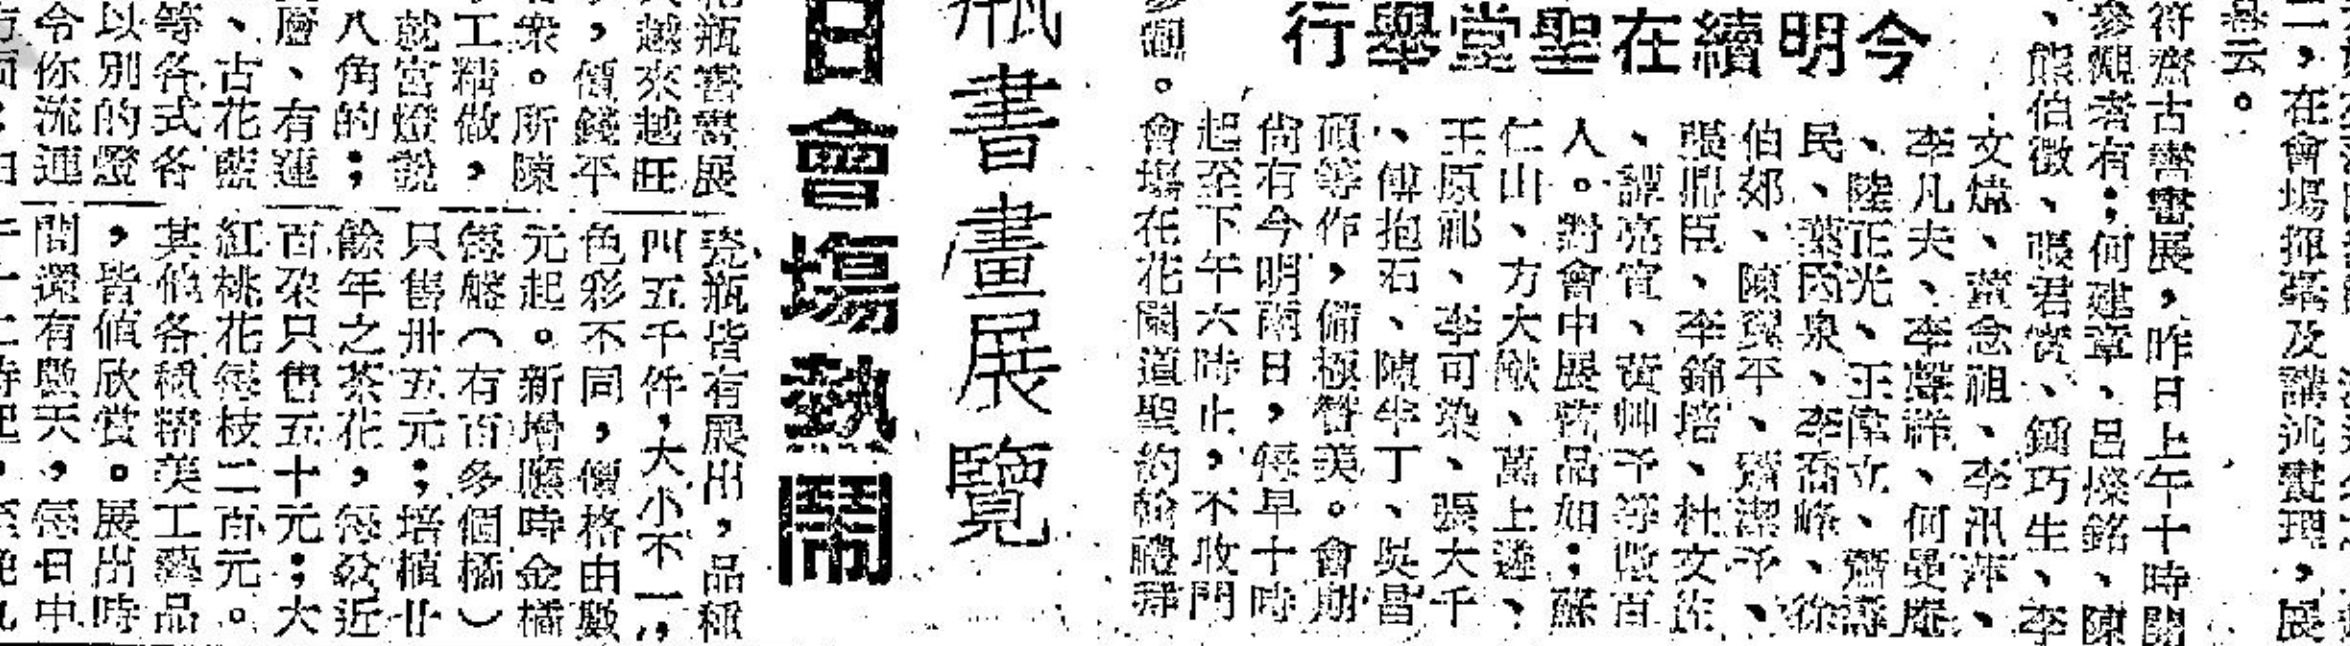 二，在會場揮毫及講述畫理，展
畧云。
今明續在聖堂舉行
符齋古書畫展，昨日上午十時開
參觀者有；何建章、呂燦銘、陳
、熊伯微、張君實、鍾巧生、李
文煒、董念祖、李汛萍、
李凡夫、李聲祥、何曼庵
、陸正光、王偉立、蕭壽
民、葉因泉、李喬峰、徐
伯郊、陳璞平、潘潔予、
張鼎臣、李錦培、杜文佐
、譚亮賓、黃帥予等數百
人。對會中展覽品如；蘇
仁山、方大猷、萬上遴、
王原祁、李可染、張大千
、傅抱石、陳半丁、吳昌
碩等作，備極讚美。會期
尙有今明兩日，每早十時
起至下午六時止，不收門
參觀。會場在花園道聖約翰禮拜
瓶書畫展覽
日會場熱鬧
瓶書畫展
越來越旺
，價錢平
衆。所陳
工精做，
就宮燈說
八角的；
層、有蓮
、古花籃
等各式各
以別的燈
令你流連
瓷瓶皆有展出，品種
四五千件，大小不一，
色彩不同，價格由數
元起。新增應時金橘
每盤（有百多個橘）
只售卅五元；培植廿
餘年之茶花，每盆近
百朶只售五十元；大
紅桃花每枝二百元。
其他各種精美工藝品
，皆値欣賞。展出時
間還有數天，每日中